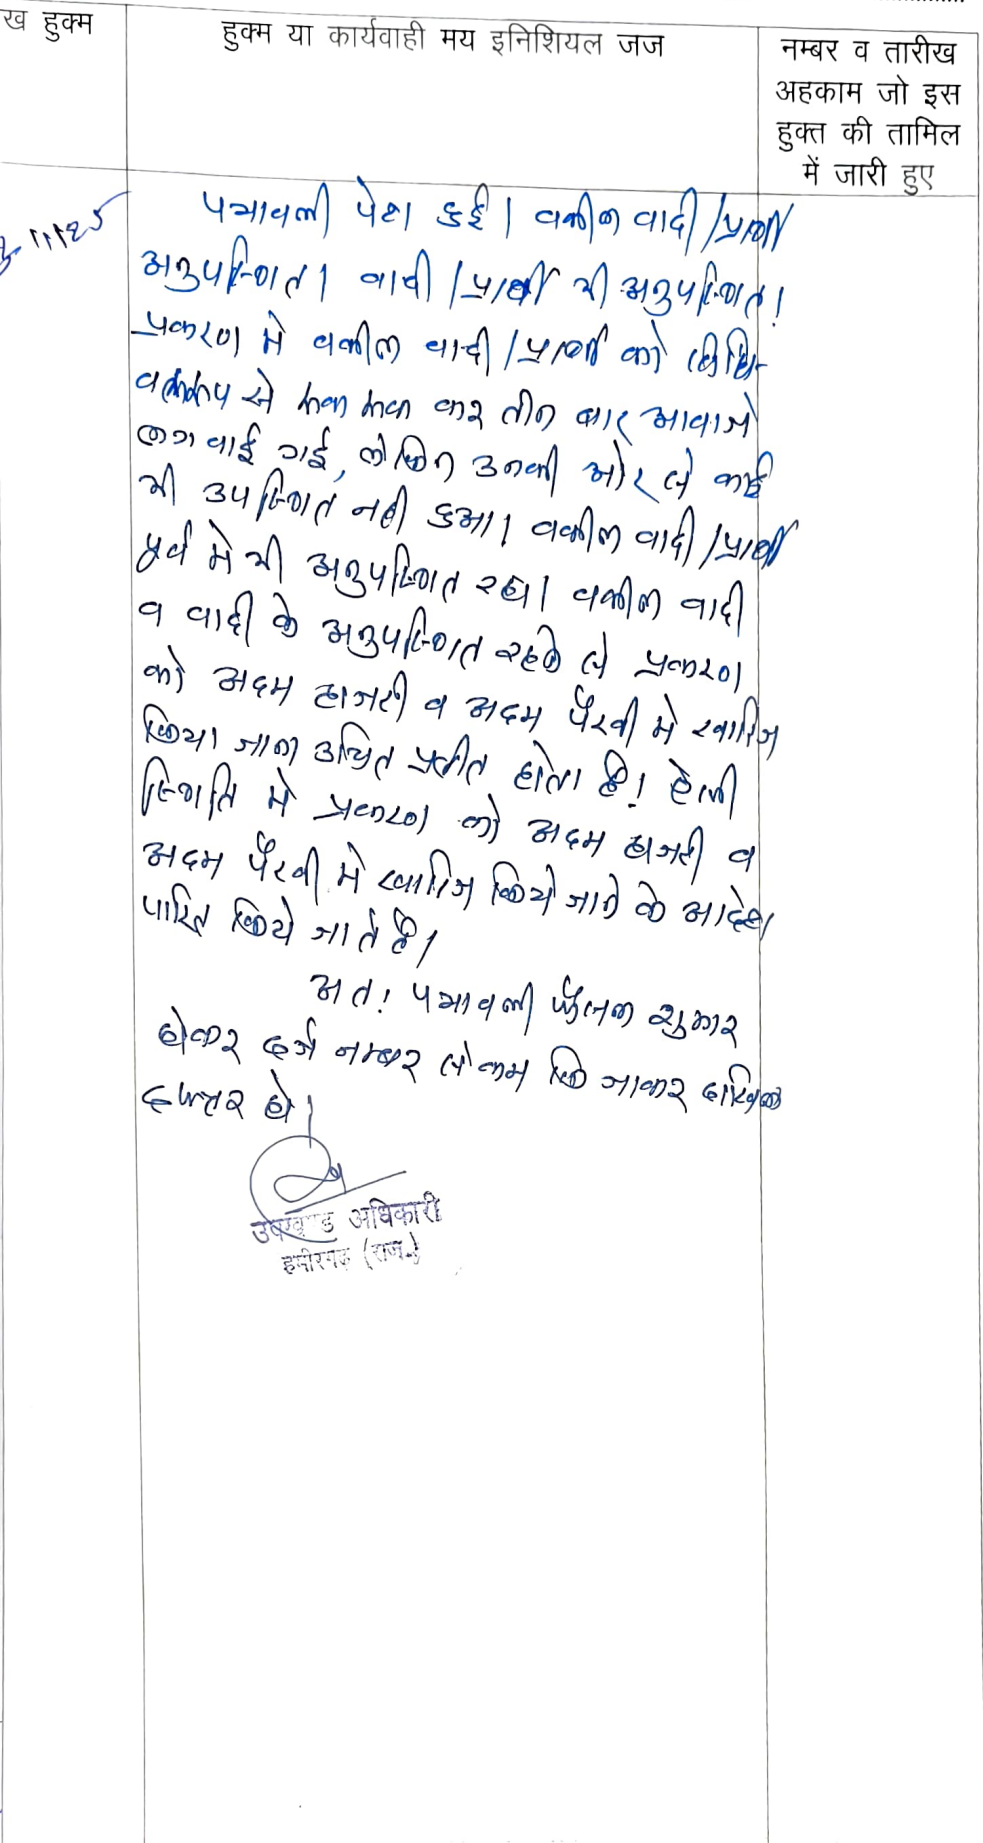 ख हुक्म
हुक्म या कार्यवाही मय इनिशियल जज
नम्बर व तारीख
अहकाम जो इस
हुक्त की तामिल
में जारी हुए
11/25
पत्रावली पेश हुई। वकील वादी/प्रार्थी
अनुपस्थित। वादी/प्रार्थी भी अनुपस्थित।
प्रकरण में वकील वादी/प्रार्थी को विधि-
से रूक रूक कर तीन बार आवाजे
लगवाई गई, लेकिन उनकी ओर से कोई
भी उपस्थित नही हुआ। वकील वादी/प्रार्थी
पूर्व मे भी अनुपस्थित रहा। वकील वादी
व वादी के अनुपस्थित रहने से प्रकरण
को अदम हाजरी व अदम पैरवी मे खारिज
किया जाना उचित प्रतीत होता है। ऐसी
स्थिति मे प्रकरण को अदम हाजरी व
अदम पैरवी मे खारिज किये जाने के आदेश
पारित किये जाते है।
अत: पत्रावली फैसल शुमार
होकर दर्ज नम्बर से कम कि जाकर दाखिल
दफ्तर हो।
उपखण्ड अधिकारी
हमीरगढ़ (राज.)